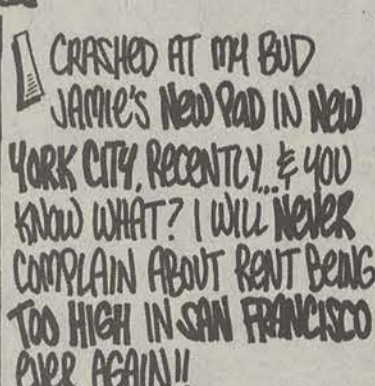 I CRASHED AT MY BUD
JAMIE'S NEW PAD IN NEW
YORK CITY, RECENTLY...& YOU
KNOW WHAT? I WILL NEVER
COMPLAIN ABOUT RENT BEING
TOO HIGH IN SAN FRANCISCO
EVER AGAIN!!